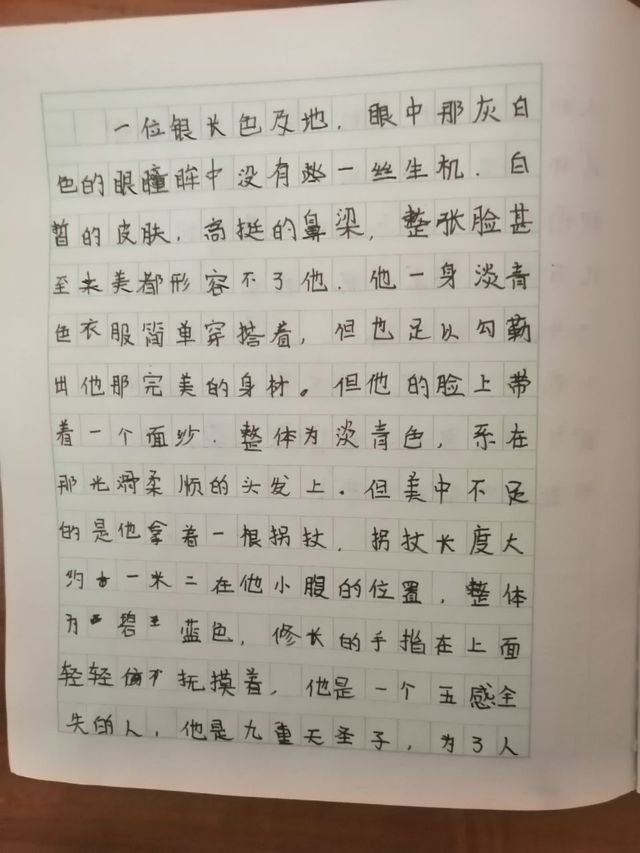 一位银长色及地，眼中那灰白
色的眼瞳眸中没有一丝生机．白
皙的皮肤，高挺的鼻梁，整张脸甚
至未美都形容不了他．他一身淡青
色衣服简单穿搭着，但也足以勾勒
出他那完美的身材。但他的脸上带
着一个面纱．整体为淡青色，系在
那光滑柔顺的头发上．但美中不足
的是他拿着一根拐杖，拐杖长度大
约一米二在他小腹的位置，整体
为碧蓝色，修长的手指在上面
轻轻抚摸着，他是一个五感全
失的人，他是九重天圣子，为了人